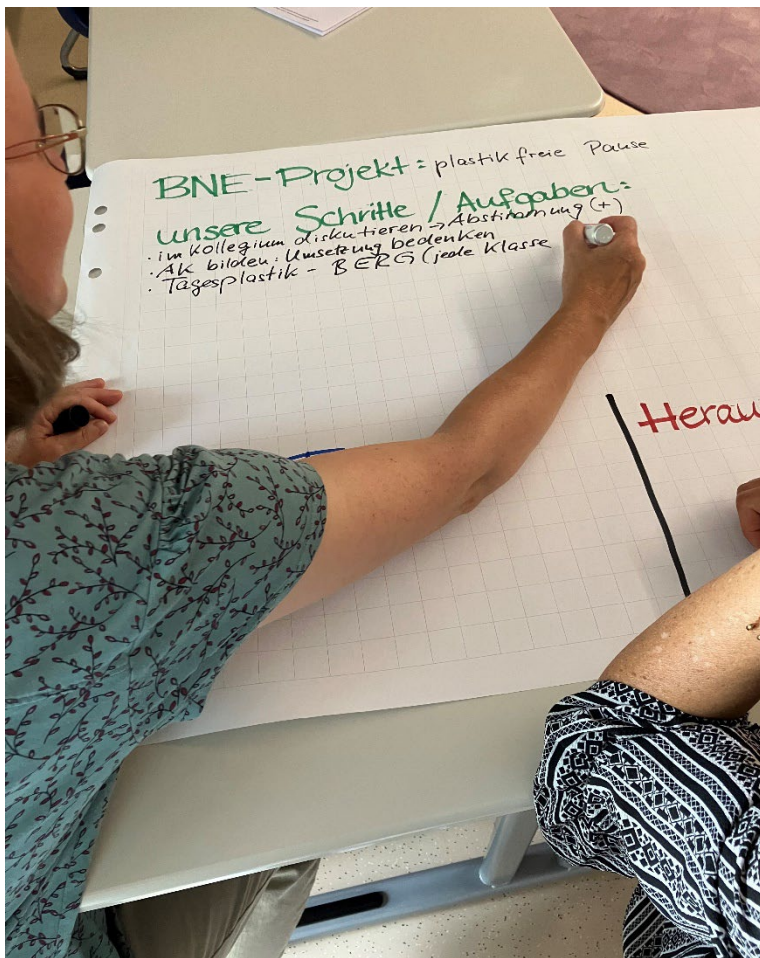 BNE-Projekt: plastikfreie Pause
unsere Schritte / Aufgaben:
· im Kollegium diskutieren → Abstimmung (+)
· AK bilden: Umsetzung bedenken
· Tagesplastik - BERG (jede Klasse
Herau